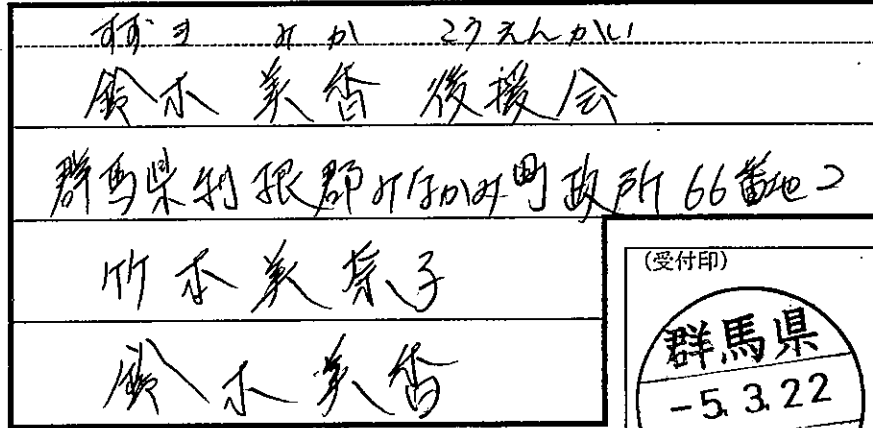 すずき みか こうえんかい
鈴木 美香 後援会
群馬県利根郡みなかみ町政所66番地2
竹本美奈子
鈴木美香
(受付印)
群馬県
-5.3.22